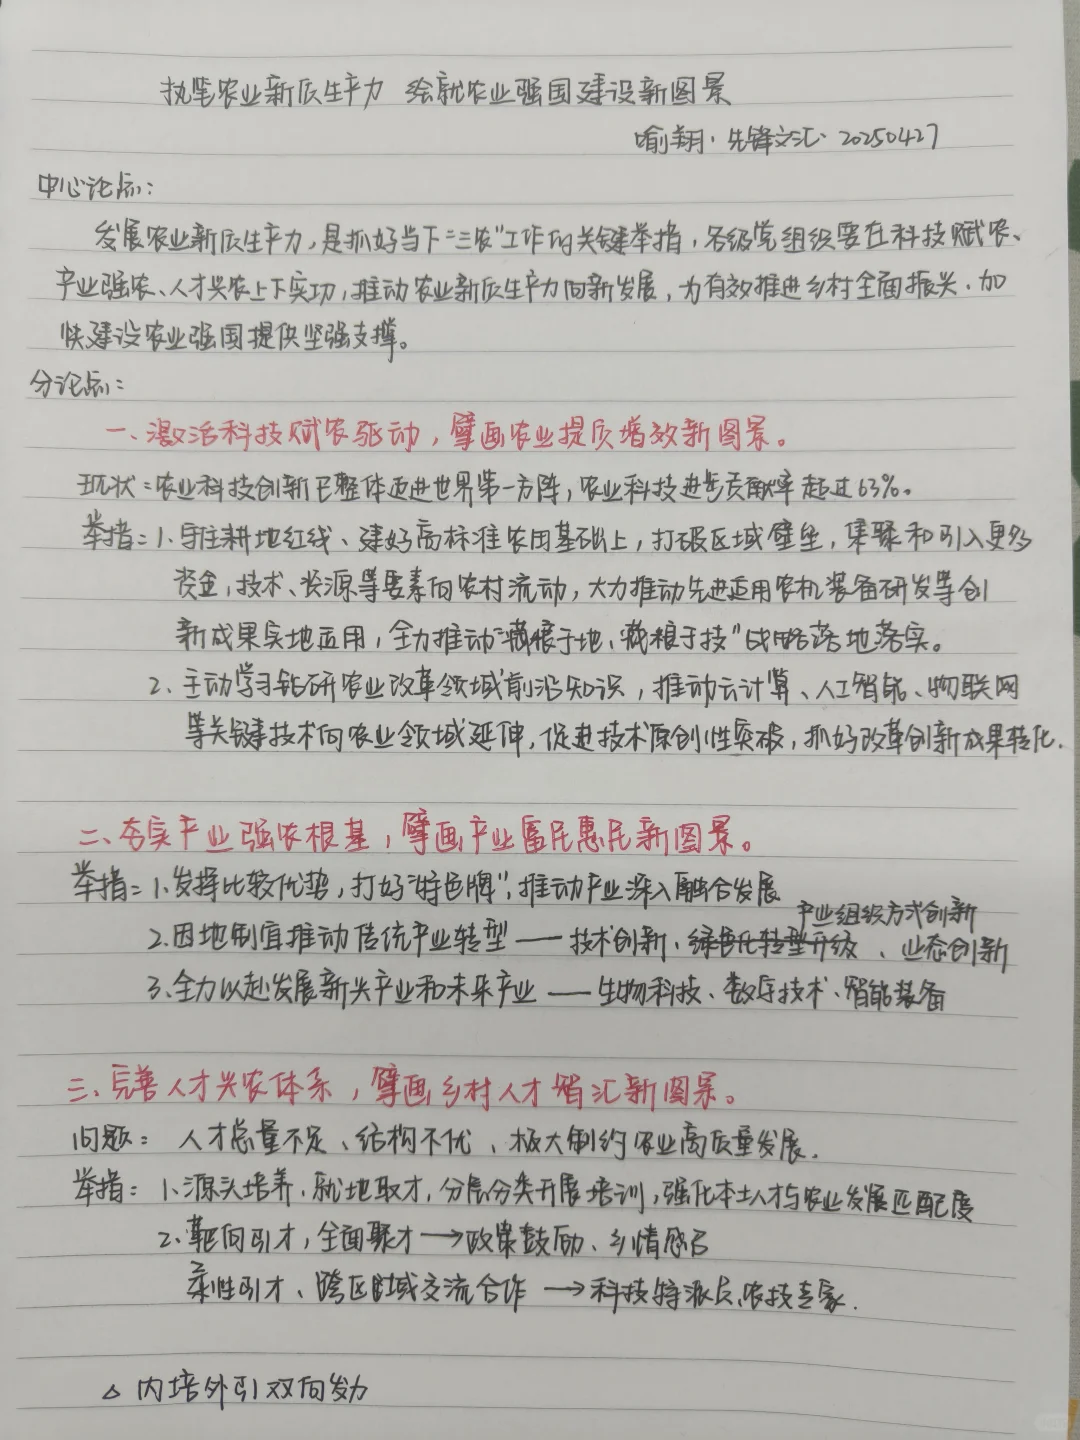 执笔农业新质生产力 绘就农业强国建设新图景
喻翔·先锋文汇·20250427
中心论点：
发展农业新质生产力，是抓好当下“三农”工作的关键举措，各级党组织要在科技赋农、
产业强农、人才兴农上下实功，推动农业新质生产力向新发展，为有效推进乡村全面振兴、加
快建设农业强国提供坚强支撑。
分论点：
一、激活科技赋农驱动，擘画农业提质增效新图景。
现状：农业科技创新已整体迈进世界第一方阵，农业科技进步贡献率超过63%。
举措：1、守住耕地红线、建好高标准农田基础上，打破区域壁垒，集聚和引入更多
资金，技术、资源等要素向农村流动，大力推动先进适用农机装备研发等创
新成果实地应用，全力推动“藏粮于地，藏粮于技”战略落地落实。
2、主动学习钻研农业改革领域前沿知识，推动云计算、人工智能、物联网
等关键技术向农业领域延伸，促进技术原创性突破，抓好改革创新成果转化.
二、夯实产业强农根基，擘画产业富民惠民新图景。
举措：1、发挥比较优势，打好“特色牌”，推动产业深入融合发展
产业组织方式创新
2、因地制宜推动传统产业转型——技术创新、绿色化转型升级、业态创新
3、全力以赴发展新兴产业和未来产业——生物科技、数字技术、智能装备
三、完善人才兴农体系，擘画乡村人才智汇新图景。
问题：人才总量不足、结构不优、极大制约农业高质量发展.
举措：1、源头培养，就地取才，分层分类开展培训，强化本土人才与农业发展匹配度
2、靶向引才，全面聚才→政策鼓励、乡情感召
柔性引才、跨区域交流合作→科技特派员、农技专家.
△ 内培外引双向发力